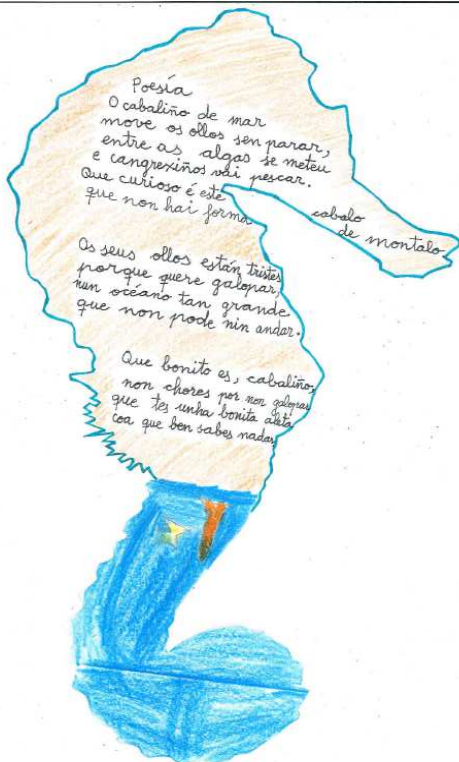 Poesía
O cabaliño de mar
move os ollos sen parar,
entre as algas se meteu
e cangrexiños vai pescar.
Que curioso é este cabalo
que non hai forma de montalo
Os seus ollos están tristes
porque quere galopar,
nun océano tan grande
que non pode nin andar.
Que bonito es, cabaliño,
non chores por non galopar
que tes unha bonita aleta
coa que ben sabes nadar